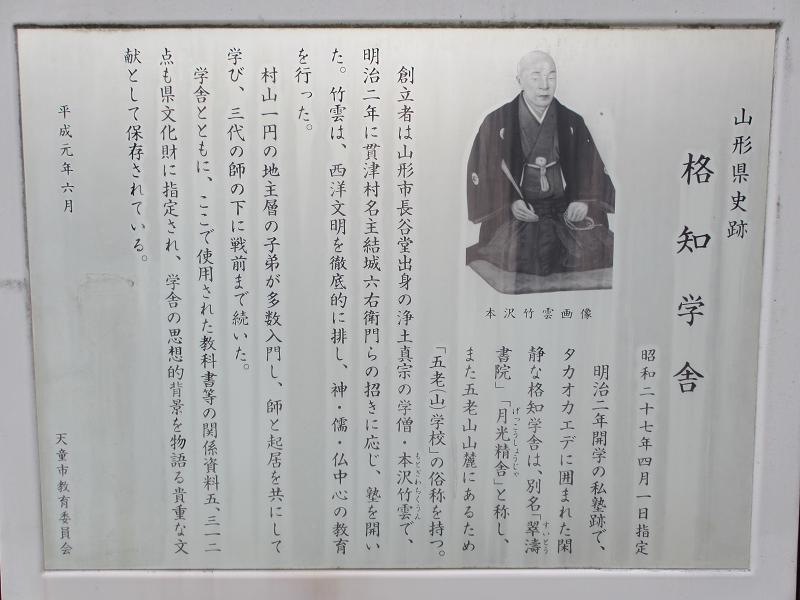 山形県史跡
格知学舎
昭和二十七年四月一日指定
明治二年開学の私塾跡で、
タカオカエデに囲まれた閑
静な格知学舎は、別名「翠濤
すいとう
書院」「月光精舎」と称し、
げっこうしょうじゃ
また五老山山麓にあるため
「五老(山)学校」の俗称を持つ。
本沢竹雲画像
創立者は山形市長谷堂出身の浄土真宗の学僧・本沢竹雲で、
もとざわちくうん
明治二年に貫津村名主結城六右衛門らの招きに応じ、塾を開い
た。竹雲は、西洋文明を徹底的に排し、神・儒・仏中心の教育
を行った。
村山一円の地主層の子弟が多数入門し、師と起居を共にして
学び、三代の師の下に戦前まで続いた。
学舎とともに、ここで使用された教科書等の関係資料五、三一二
点も県文化財に指定され、学舎の思想的背景を物語る貴重な文
献として保存されている。
平成元年六月
天童市教育委員会